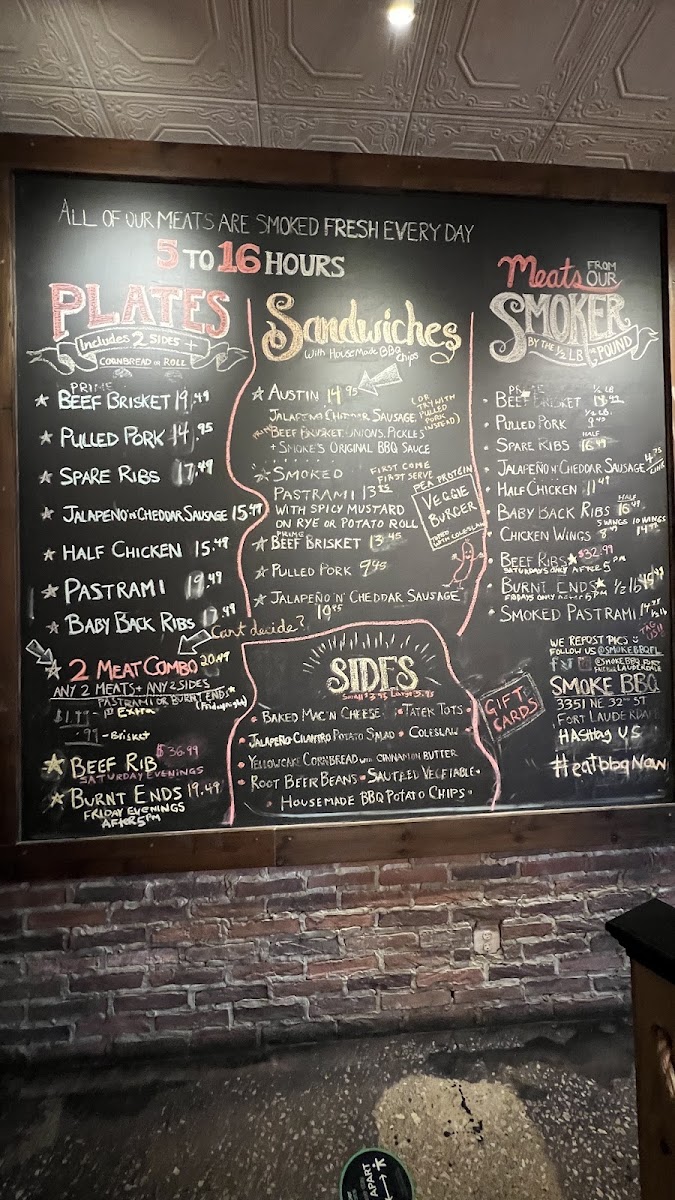 ALL OF OUR MEATS ARE SMOKED FRESH EVERY DAY
5 TO 16 HOURS
PLATES
Includes 2 SIDES +
CORNBREAD OR ROLL
PRIME
BEEF BRISKET 19.49
PULLED PORK 14.95
SPARE RIBS 17.49
JALAPEÑO 'N' CHEDDAR SAUSAGE 15.49
HALF CHICKEN 15.49
PASTRAMI 19.49
BABY BACK RIBS 17.49
Can't decide?
2 MEAT COMBO 20.49
ANY 2 MEATS + ANY 2 SIDES
PASTRAMI OR BURNT ENDS*
$1.99 - Extra (Friday night)
.99 - BRISKET
BEEF RIB $36.99
SATURDAY EVENINGS
BURNT ENDS 19.49
FRIDAY EVENINGS
AFTER 5PM
Sandwiches
With HouseMade BBQ Chips
AUSTIN 14.95
JALAPEÑO CHEDDAR SAUSAGE
PRIME BEEF BRISKET, ONIONS, PICKLES
+ SMOKE'S ORIGINAL BBQ SAUCE
(OR TRY WITH PULLED PORK INSTEAD)
SMOKED
FIRST COME
FIRST SERVE
PASTRAMI 13
WITH SPICY MUSTARD
ON RYE OR POTATO ROLL
PRIME
BEEF BRISKET 13.45
PULLED PORK 9.95
JALAPEÑO N' CHEDDAR SAUSAGE
10.95
PEA PROTEIN
VEGGIE
BURGER
TOPPED WITH COLESLAW
SIDES
Small $3.95 Large $5.95
BAKED MAC 'N CHEESE
TATER TOTS
JALAPEÑO-CILANTRO POTATO SALAD
COLESLAW
YELLOWCAKE CORNBREAD WITH CINNAMON BUTTER
ROOT BEER BEANS
SAUTEED VEGETABLE
HOUSEMADE BBQ POTATO CHIPS
Meats FROM OUR
SMOKER
BY THE 1/2 LB OR POUND
PRIME 1/2 LB
BEEF BRISKET
1/2 LB.
PULLED PORK 9.45
HALF
SPARE RIBS 16.49
JALAPEÑO N' CHEDDAR SAUSAGE 4.75 LINK
HALF CHICKEN 11.49
HALF
BABY BACK RIBS 16.49
5 WINGS 10 WINGS
CHICKEN WINGS
BEEF RIBS $32.99
SATURDAYS ONLY AFTER 5PM
BURNT ENDS 1/2 lb
FRIDAYS ONLY AFTER 5PM
SMOKED PASTRAMI 1/2 lb
GIFT
CARDS
WE REPOST PICS
TAG US!!
FOLLOW US @SMOKEBBQFL
SMOKE BBQ
3351 NE 32ND ST
FORT LAUDERDALE
HASHtag US
#eatbbqNow
APART